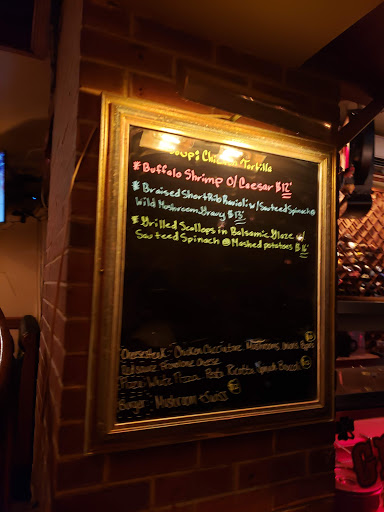 Soup: Chicken Tortilla
* Buffalo Shrimp O/Caesar $12
* Braised Short Rib Ravioli w/ Sauteed Spinach @
Wild Mushroom Gravy $13
* Grilled Scallops in Balsamic Glaze w/
Sauteed Spinach @ Mashed potatoes $16
Cheesesteak: Chicken Cacciatore Mushrooms Onions
Red sauce Provolone cheese
Pizza: White Pizza Pesto Ricotta Spinach
Burger: Mushroom + Swiss